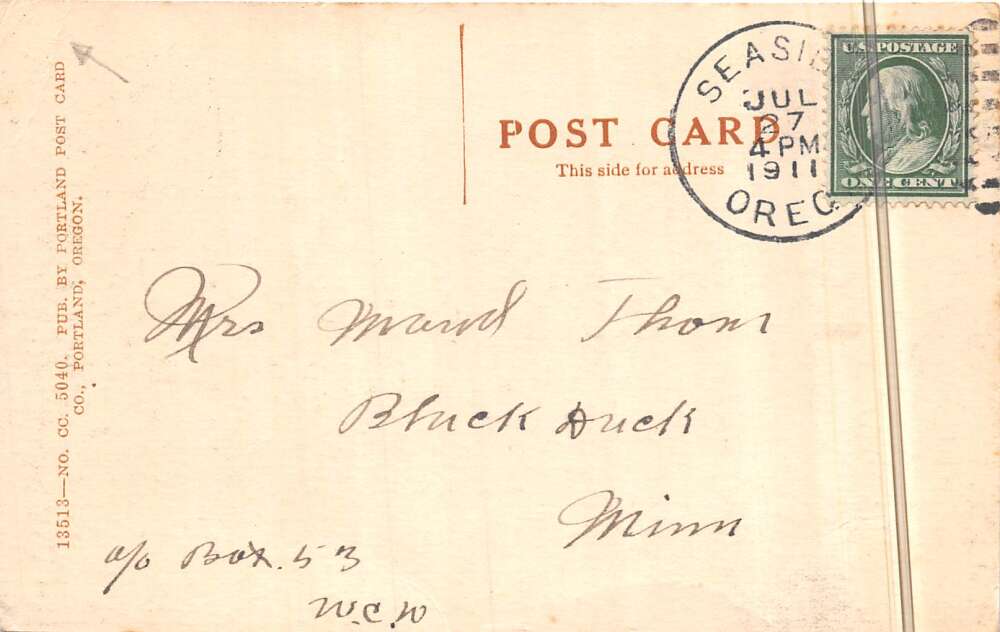 13513—NO. CC. 5040. PUB. BY PORTLAND POST CARD
CO., PORTLAND, OREGON.
POST CARD
This side for address
SEASID
JUL
27
4 PM
1911
OREG
U.S. POSTAGE
ONE CENT
Mrs Maud Thom
Black Duck
Minn
c/o Box. 53
W.C.W